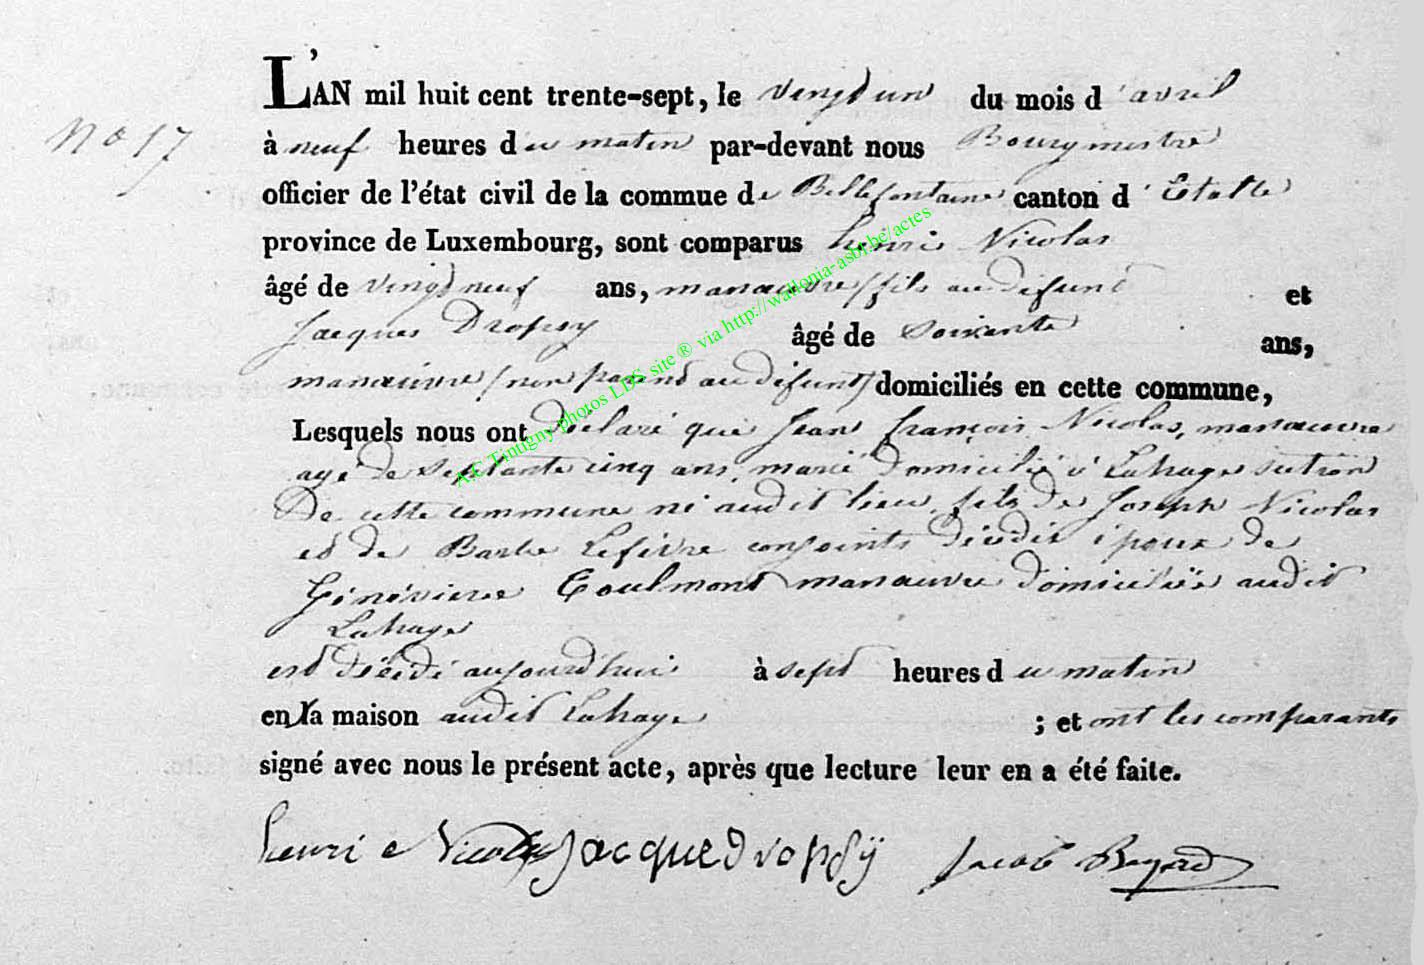 L'AN mil huit cent trente-sept, le vingt un du mois d'avril
No 17
à neuf heures du matin par-devant nous Bourgmestre
officier de l'état civil de la commue de Bellefontaine canton d'Etalle
province de Luxembourg, sont comparus henri Nicolas
âgé de vingt neuf ans, manœuvre (fils au difunt et
Jacques Dropsy âgé de soixante ans,
manœuvre (non parend au difunt) domiciliés en cette commune,
Lesquels nous ont déclaré que Jean françois Nicolas, manœuvre
agé de septante cinq ans, marié domicilié à Lahage section
De cette commune né audit lieu, fils de Joseph Nicolas
et de Barbe Lefèvre conjoints décédés époux de
Généviève Goulmont manœuvre domiciliée audit
Lahage
est décédé aujourd'hui à sept heures du matin
en la maison audit Lahage ; et ont les comparants
signé avec nous le présent acte, après que lecture leur en a été faite.
henri Nicolas Jacque Dropsÿ Jacob
A.E Tintigny photos LDS site ® via http://wallonia-asbl.be/actes